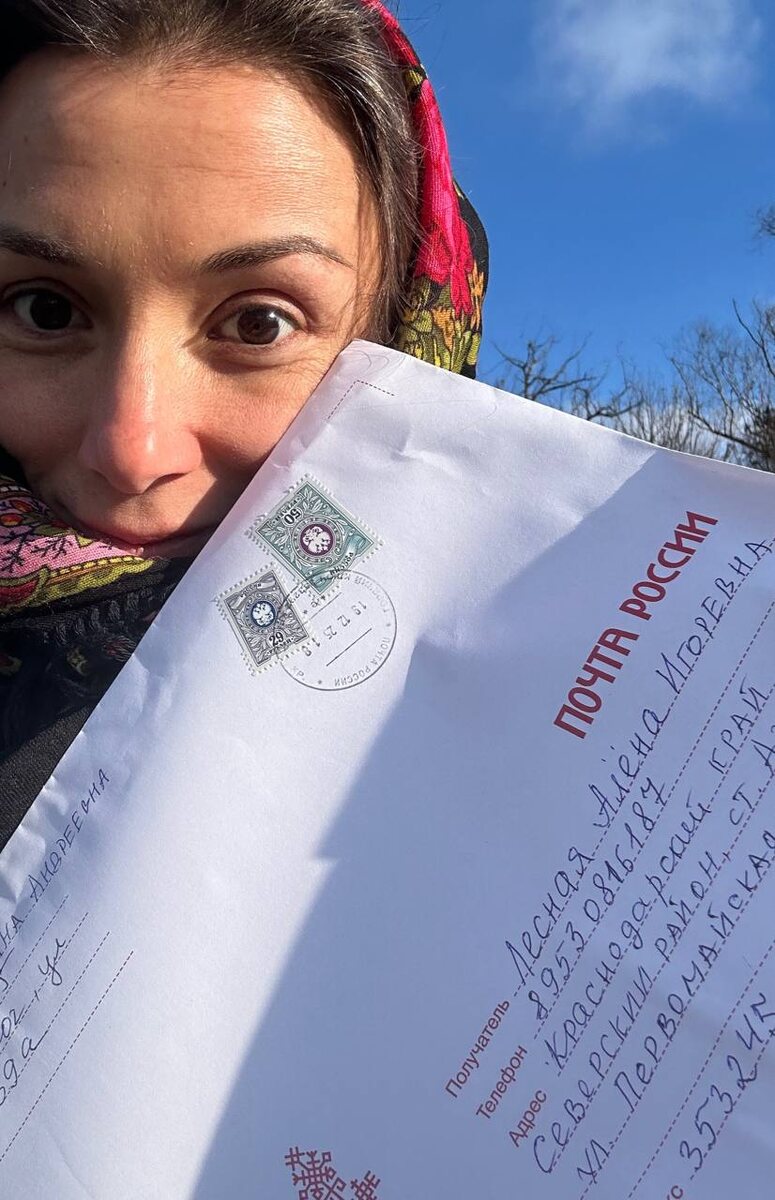 50
29
19.12.25 10
ПОЧТА РОССИИ
ПОЧТА РОССИИ
НА АНДРЕЕВНА
ул
69а
Получатель Лесная Алёна Игоревна
Телефон 89530816187
Адрес Краснодарский край
Северский район, ст. А
ул. Первомайская
353245